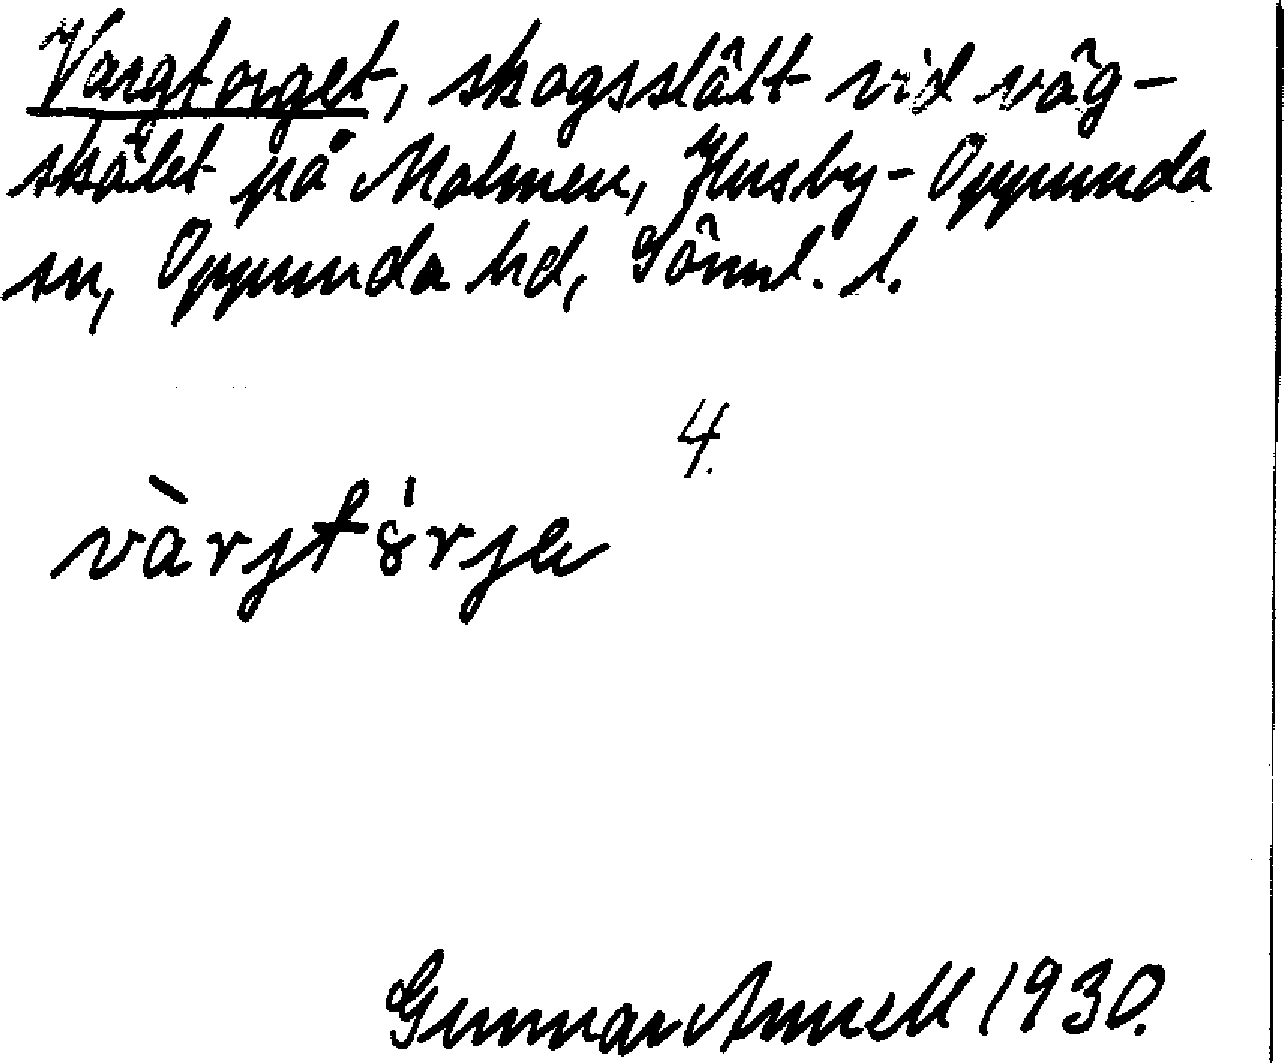 Vargtorget, skogsslätt vid väg-
skälet på Malmen, Husby-Oppunda
sn, Oppunda hd, Sörml. l.
4.
vàrjtȣ́rje
Gunnar Annell 1930.